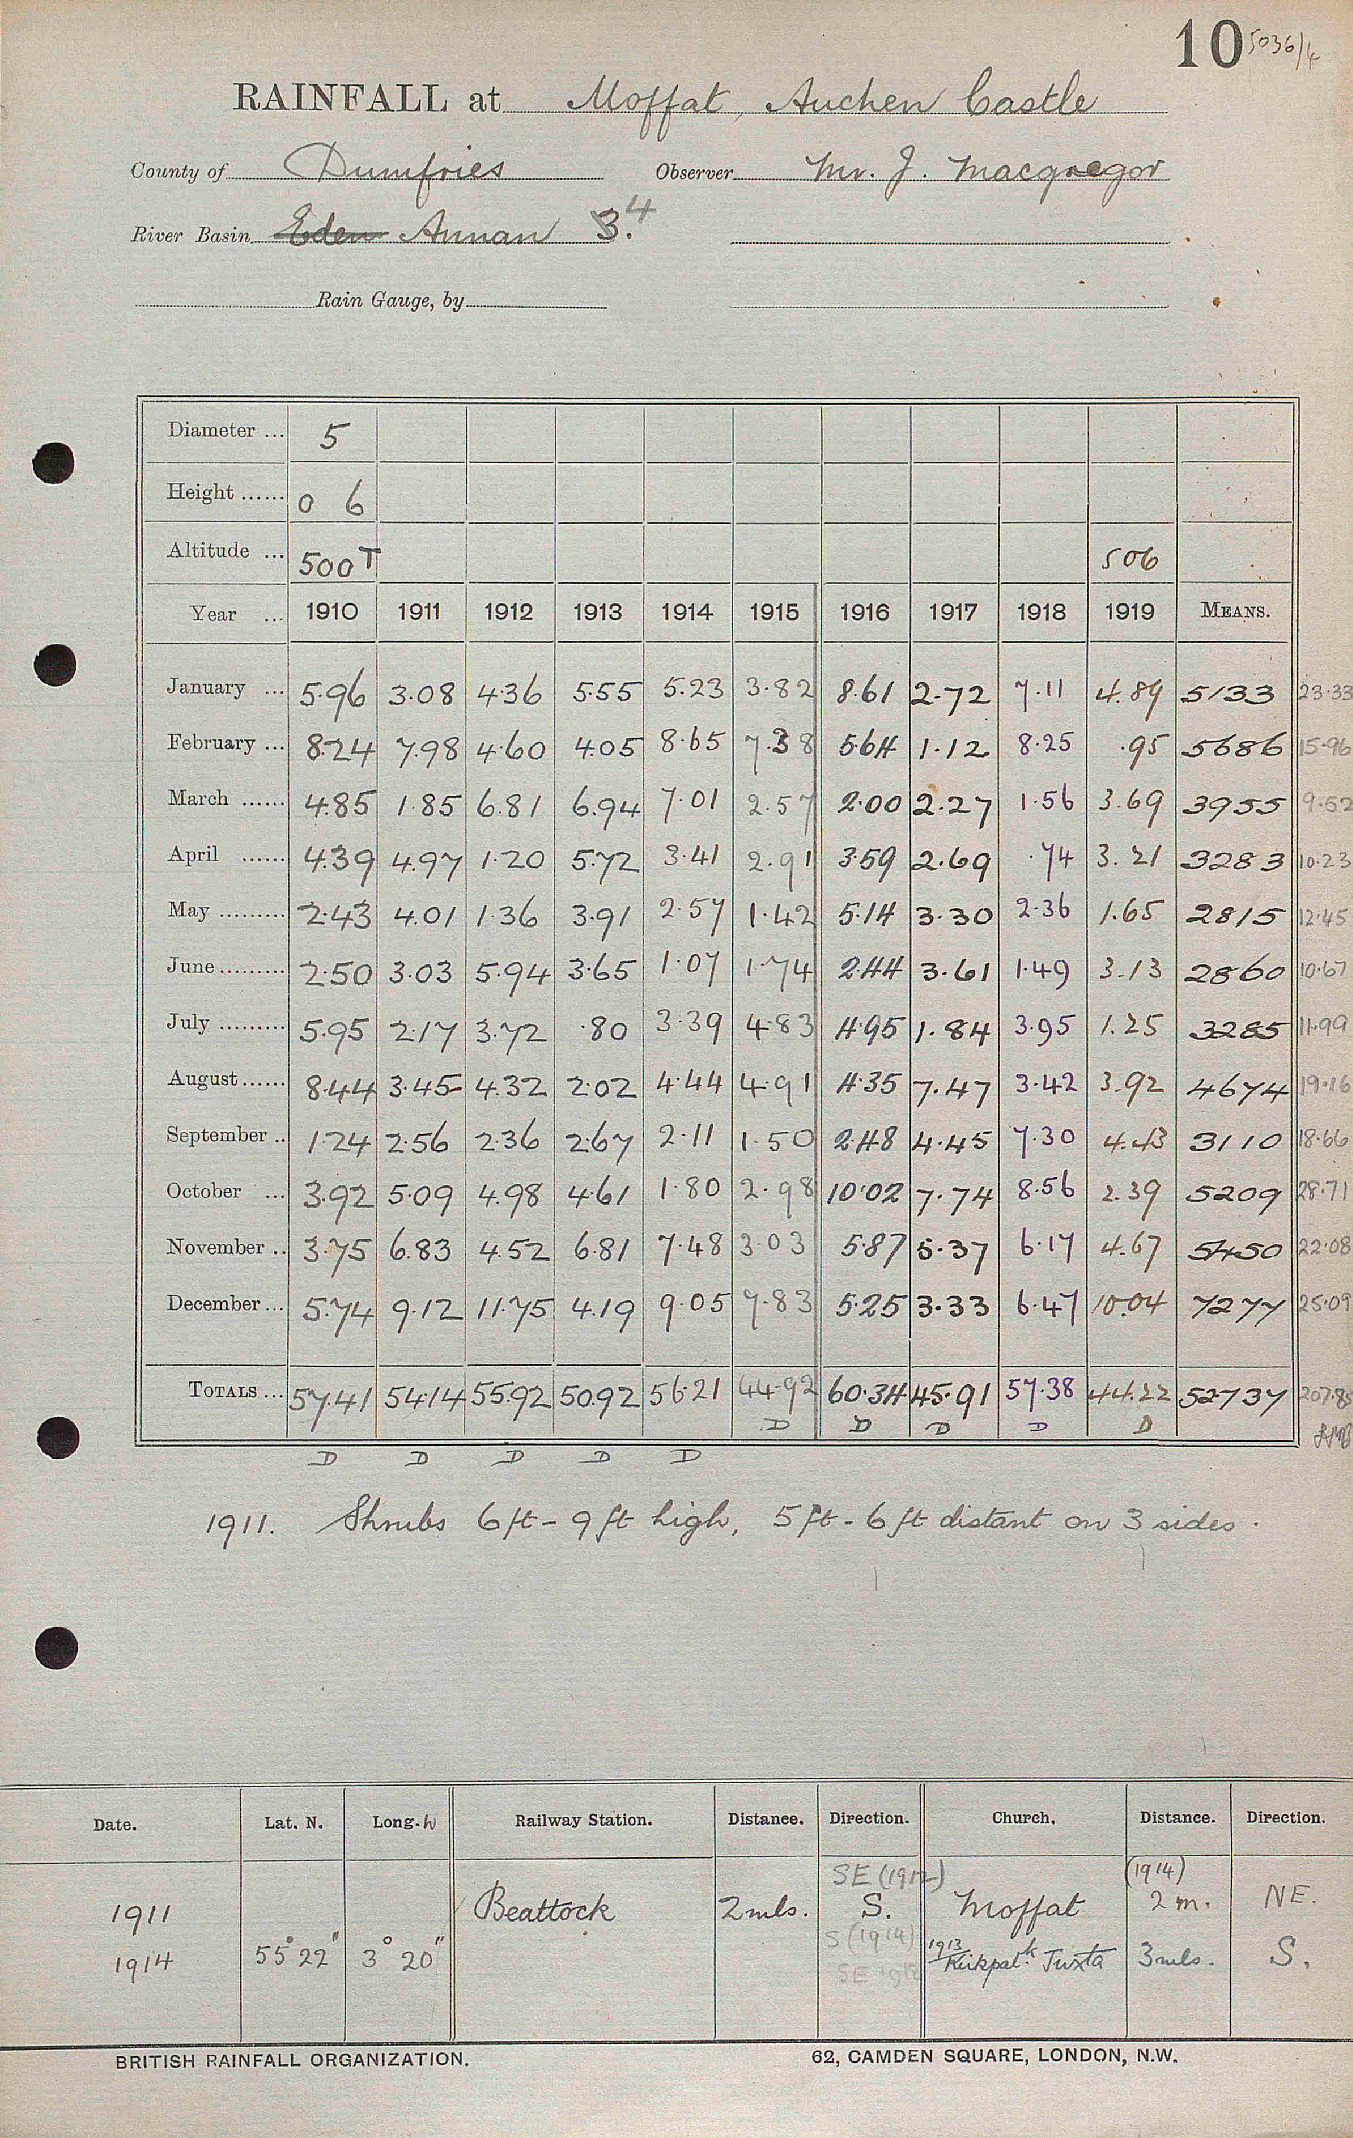 10 5036/4
RAINFALL at Moffat, Auchen Castle
County of Dumfries Observer Mr. J. Macgregor
River Basin Eden Annan 3.4
Rain Gauge, by
Diameter ... 5
Height ...... 0 6
Altitude ... 500T 506
Year ... 1910 1911 1912 1913 1914 1915 1916 1917 1918 1919 MEANS.
January ... 5.96 3.08 4.36 5.55 5.23 3.82 8.61 2.72 7.11 4.89 5133 23.33
February ... 8.24 7.98 4.60 4.05 8.65 7.38 5.64 1.12 8.25 .95 5686 15.96
March ...... 4.85 1.85 6.81 6.94 7.01 2.57 2.00 2.27 1.56 3.69 3955 9.52
April ...... 4.39 4.97 1.20 5.72 3.41 2.91 3.59 2.69 .74 3.21 3283 10.23
May ......... 2.43 4.01 1.36 3.91 2.57 1.42 5.14 3.30 2.36 1.65 2815 12.45
June ......... 2.50 3.03 5.94 3.65 1.07 1.74 2.44 3.61 1.49 3.13 2860 10.67
July ......... 5.95 2.17 3.72 .80 3.39 4.83 4.95 1.84 3.95 1.25 3285 11.99
August ...... 8.44 3.45 4.32 2.02 4.44 4.91 4.35 7.47 3.42 3.92 4674 19.16
September .. 1.24 2.56 2.36 2.67 2.11 1.50 2.48 4.45 7.30 4.43 3110 18.66
October ... 3.92 5.09 4.98 4.61 1.80 2.98 10.02 7.74 8.56 2.39 5209 28.71
November .. 3.75 6.83 4.52 6.81 7.48 3.03 5.87 5.37 6.17 4.67 5450 22.08
December ... 5.74 9.12 11.75 4.19 9.05 7.83 5.25 3.33 6.47 10.04 7277 25.09
TOTALS ... 57.41 54.14 55.92 50.92 56.21 44.92 60.34 45.91 57.38 44.22 52737 207.85
D D D D D
D D D D D
1911. Shrubs 6 ft - 9 ft high, 5 ft - 6 ft distant on 3 sides.
Date. Lat. N. Long. W Railway Station. Distance. Direction. Church. Distance. Direction.
SE (1912) (1914)
1911 Beattock 2 mls. S. Moffat 2 m. NE.
S (1914)
1914 55° 22" 3° 20" 1913 Kirkpatk. Juxta 3 mls. S.
BRITISH RAINFALL ORGANIZATION. 62, CAMDEN SQUARE, LONDON, N.W.